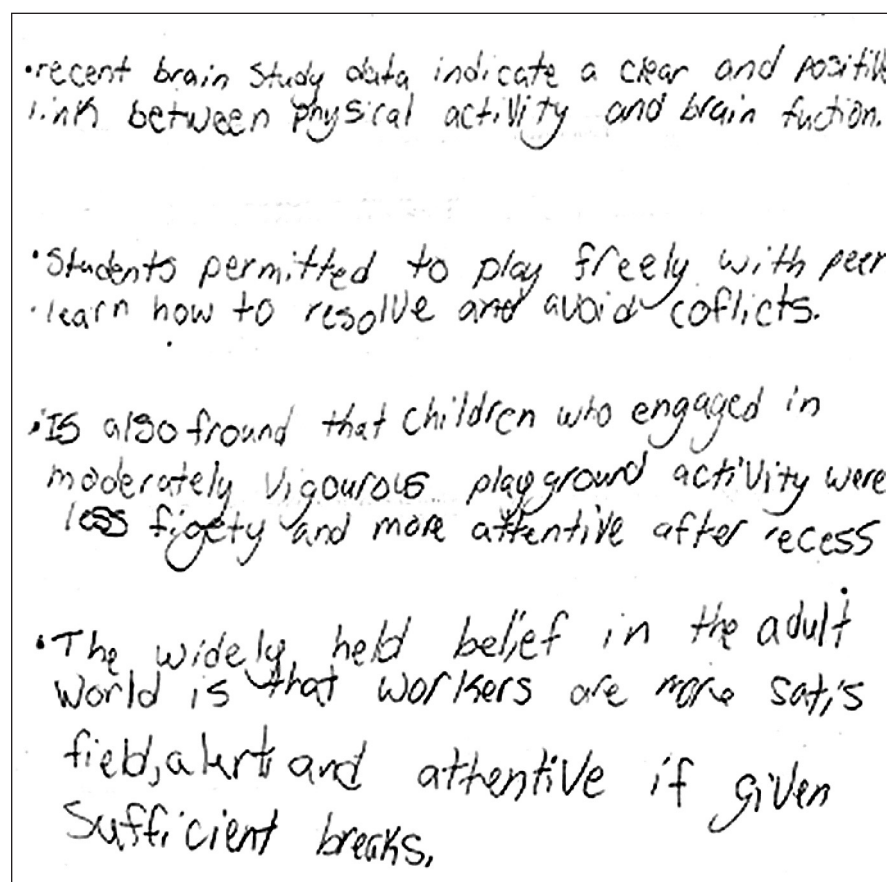 •recent brain study data indicate a clear and positive
link between physical activity and brain fuction.
•Students permitted to play freely with peer
•learn how to resolve and avoid coflicts.
•Is also fround that children who engaged in
moderately vigourous playground activity were
less figety and more attentive after recess
•The widely held belief in the adult
world is that workers are more satis
field, alert, and attentive if given
Sufficient breaks.